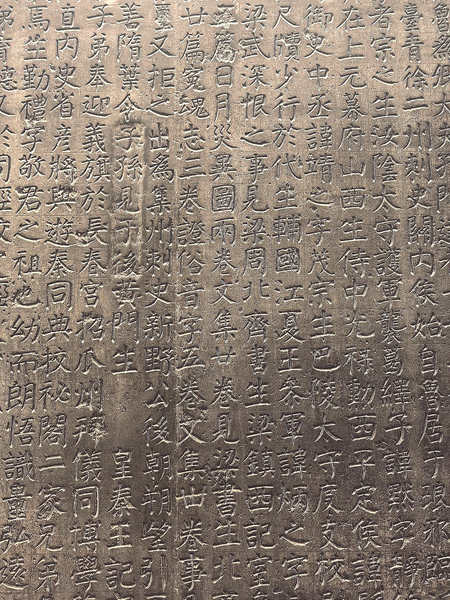 魯為卿大夫孔門達者七
臺青徐二州刺史關內侯始自魯居于琅邪臨
者宗之生汝陰太守護軍襲葛繹子諱默字靜
在上元幕府山西生侍中光祿勳西平定侯諱
御史中丞諱靖之字茂宗生巴陵太守度支校
尺牘少行於代生輔國江夏王參軍諱炳之字
梁武深恨之事見梁周北齊書生梁鎮西記室
五篇日月災異圖兩卷文集廿卷見梁書生北
廿篇冤魂志三卷證俗音字五卷文集卅卷事
又拒之出為集州刺史新野公後朝朔望引
善隋葉令子孫見于後黃門生 皇秦王記
子弟奉迎義旗於長春宮招瓜州拜儀同禆學
直內史省彥將與遊秦同典校祕閣二家兄弟
馬生勤禮字敬君之祖也幼而朗悟識量弘遠
弟育德又於司經校